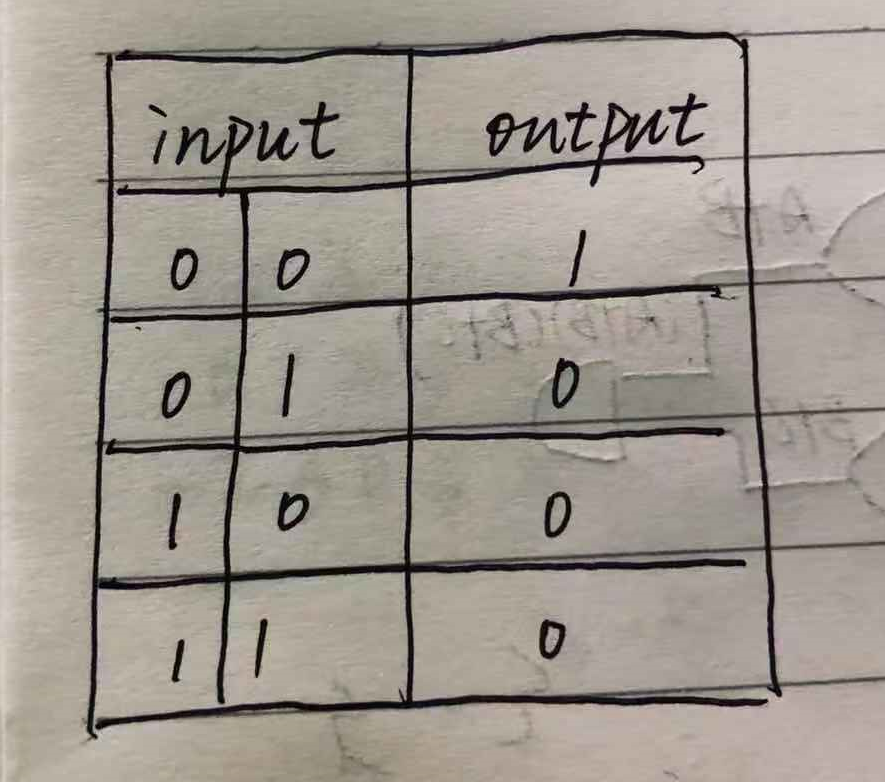 input output
0 0 1
0 1 0
1 0 0
1 1 0